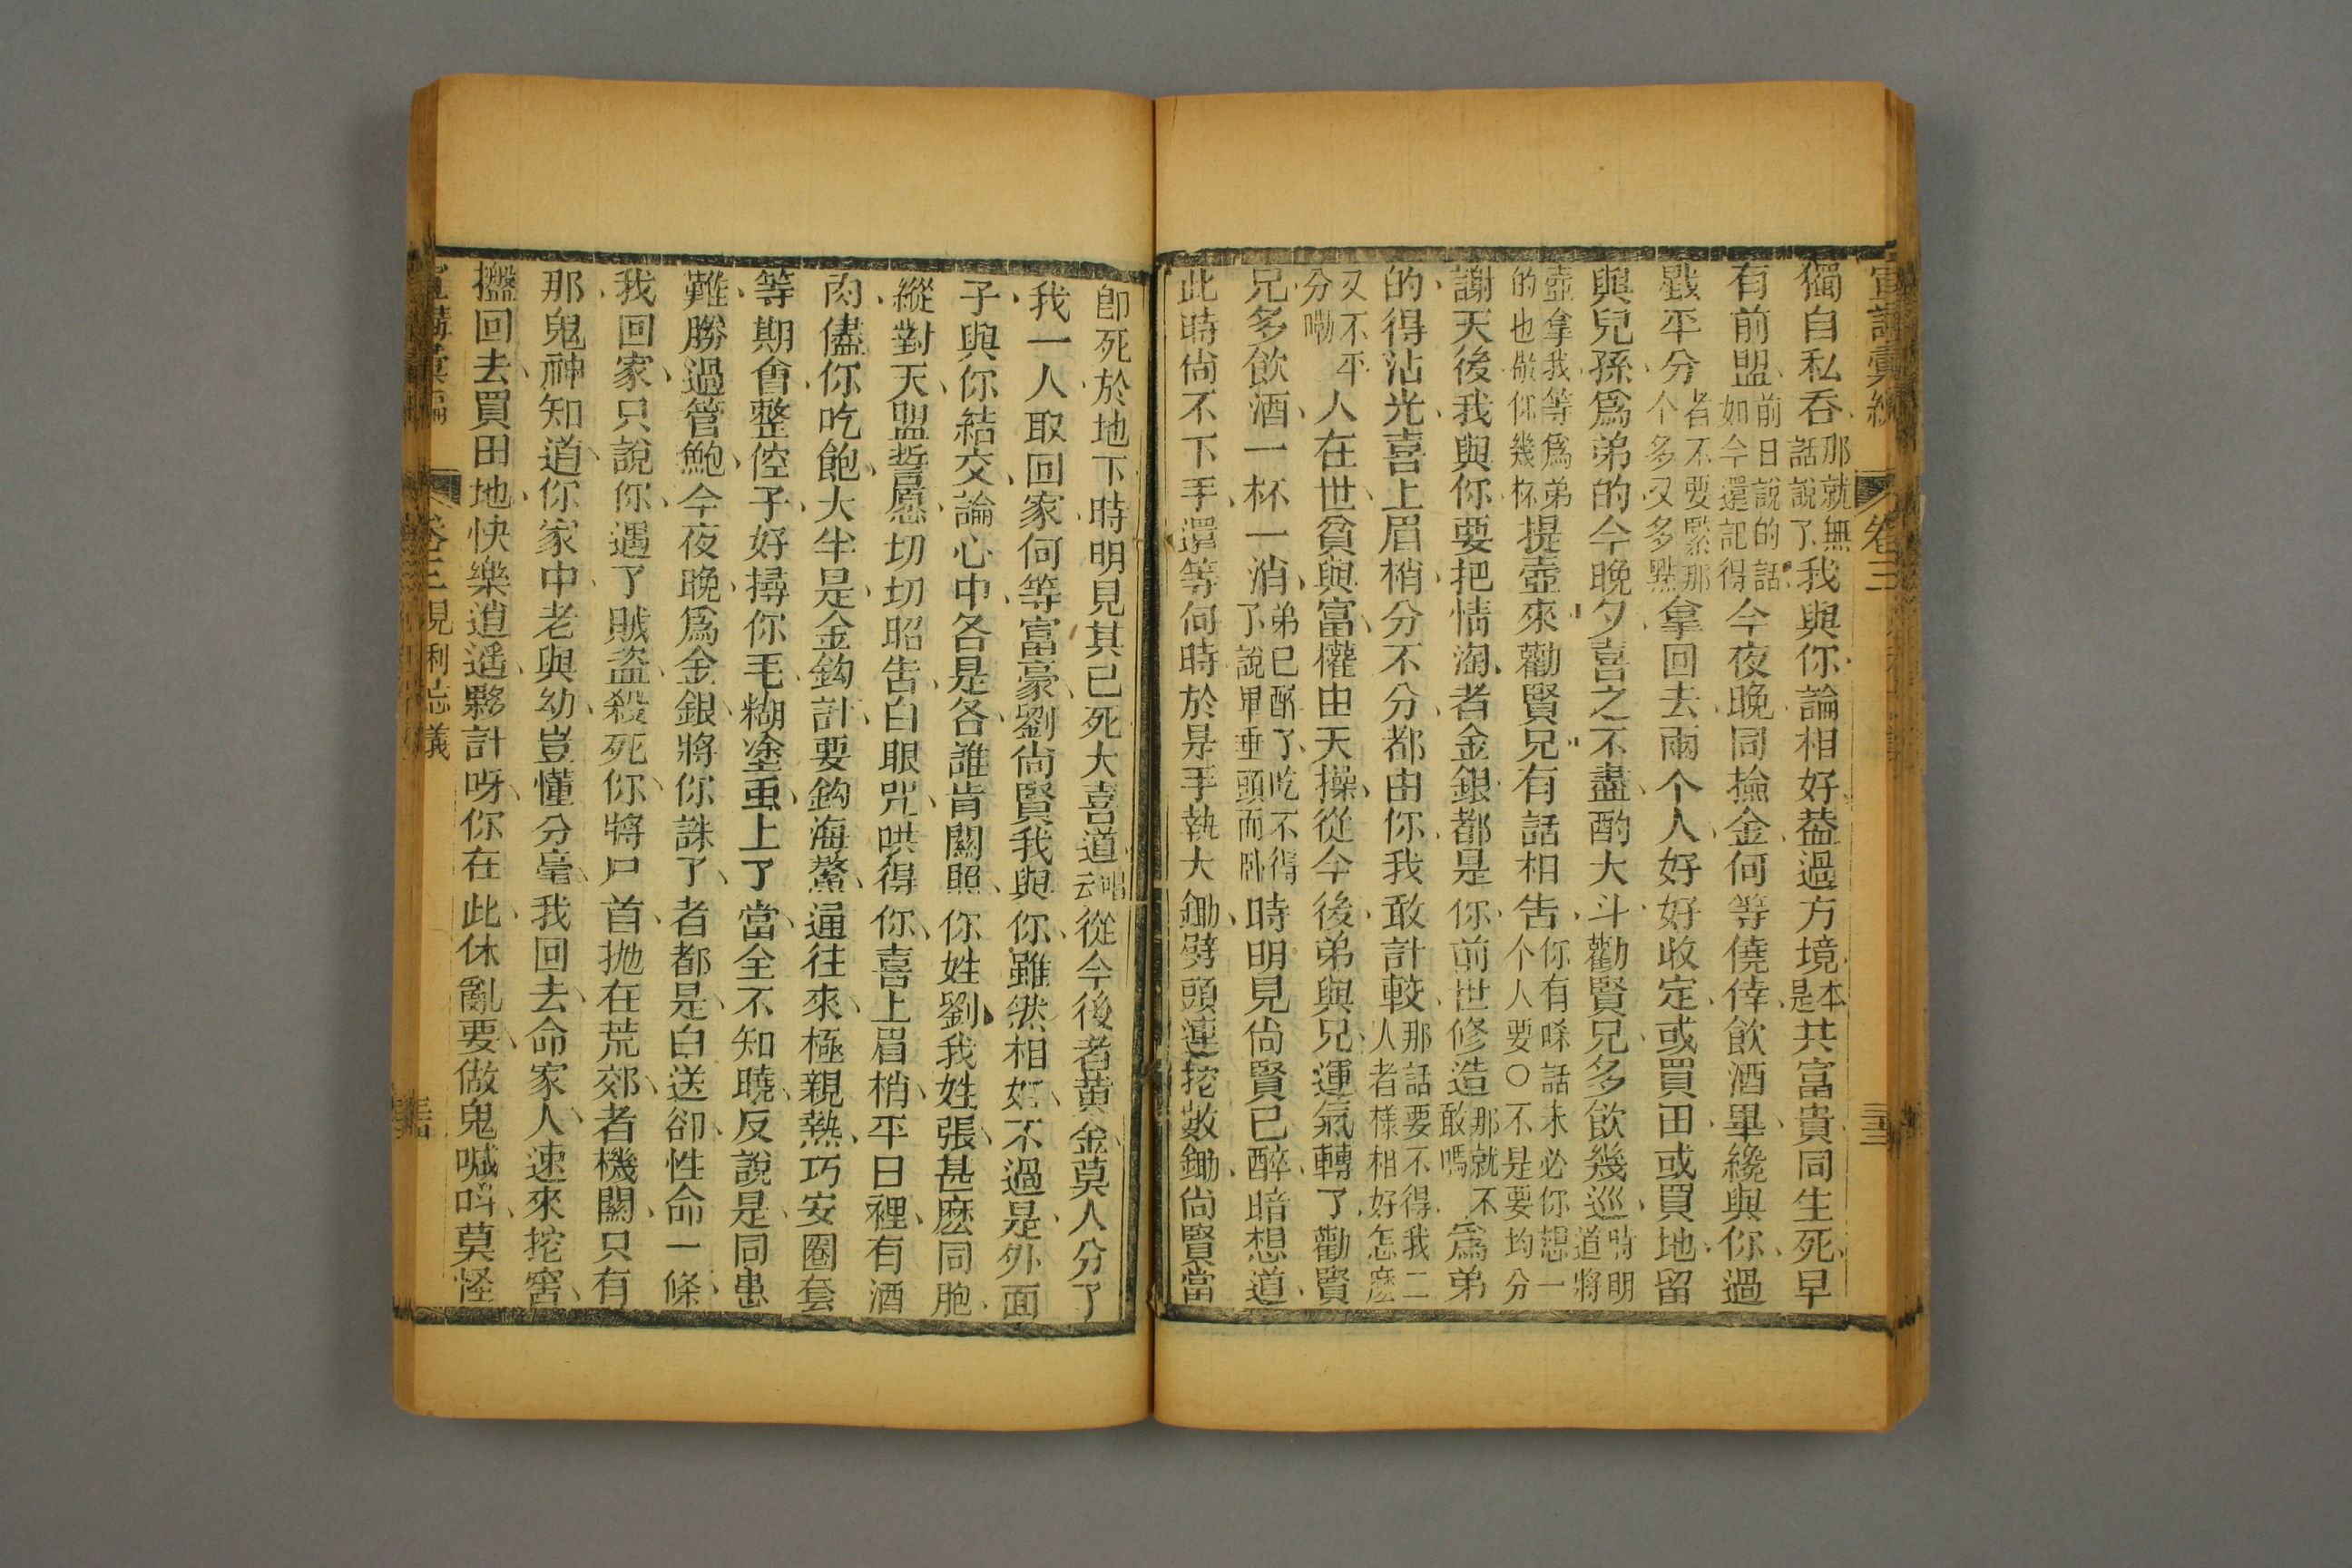 宣講彙編 卷三
獨自私吞那就無話說了我與你論相好葢過方境本是共富貴同生死早
有前盟前日說的話如今還記得今夜晚同撿金何等僥倖飲酒畢纔與你過
戥平分者不要緊那个多又多點拿回去兩个人好好收定或買田或買地留
與兒孫爲弟的今晚夕喜之不盡酌大斗勸賢兄多飲幾巡時明道將
壺拿我等爲弟的也敬你幾杯提壺來勸賢兄有話相告你有啥話未必你想一个人要〇不是要均分
謝天後我與你要把情淘者金銀都是你前世修造那就不敢嗎爲弟
的得沾光喜上眉梢分不分都由你我敢計較那話要不得我二人者樣相好怎麽
又不平分嘞人在世貧與富權由天操從今後弟與兄運氣轉了勸賢
兄多飲酒一杯一消弟已醉了吃不得了說畢垂頭而卧時明見尙賢已醉暗想道
此時尙不下手還等何時於是手執大鋤劈頭連挖數鋤尙賢當
卽死於地下時明見其已死大喜道唱云從今後者黄金莫人分了
我一人取回家何等富豪劉尙賢我與你雖然相好不過是外面
子與你結交論心中各是各誰肯關照你姓劉我姓張甚麽同胞
縱對天盟誓愿切切昭告白眼咒哄得你喜上眉梢平日裡有酒
肉儘你吃飽大半是金鈎計要鈎海鰲通往來極親熱巧安圈套
等期會整倥子好撏你毛糊塗虫上了當全不知曉反說是同患
難勝過管鮑今夜晚爲金銀將你誅了者都是白送卻性命一條
我回家只說你遇了賊盗殺死你將尸首抛在荒郊者機關只有
那鬼神知道你家中老與幼豈懂分毫我回去命家人速來挖窖
擝回去買田地快樂逍遥夥計呀你在此休亂要做鬼喊呌莫怪
宣講彙編 卷三 見利忘義